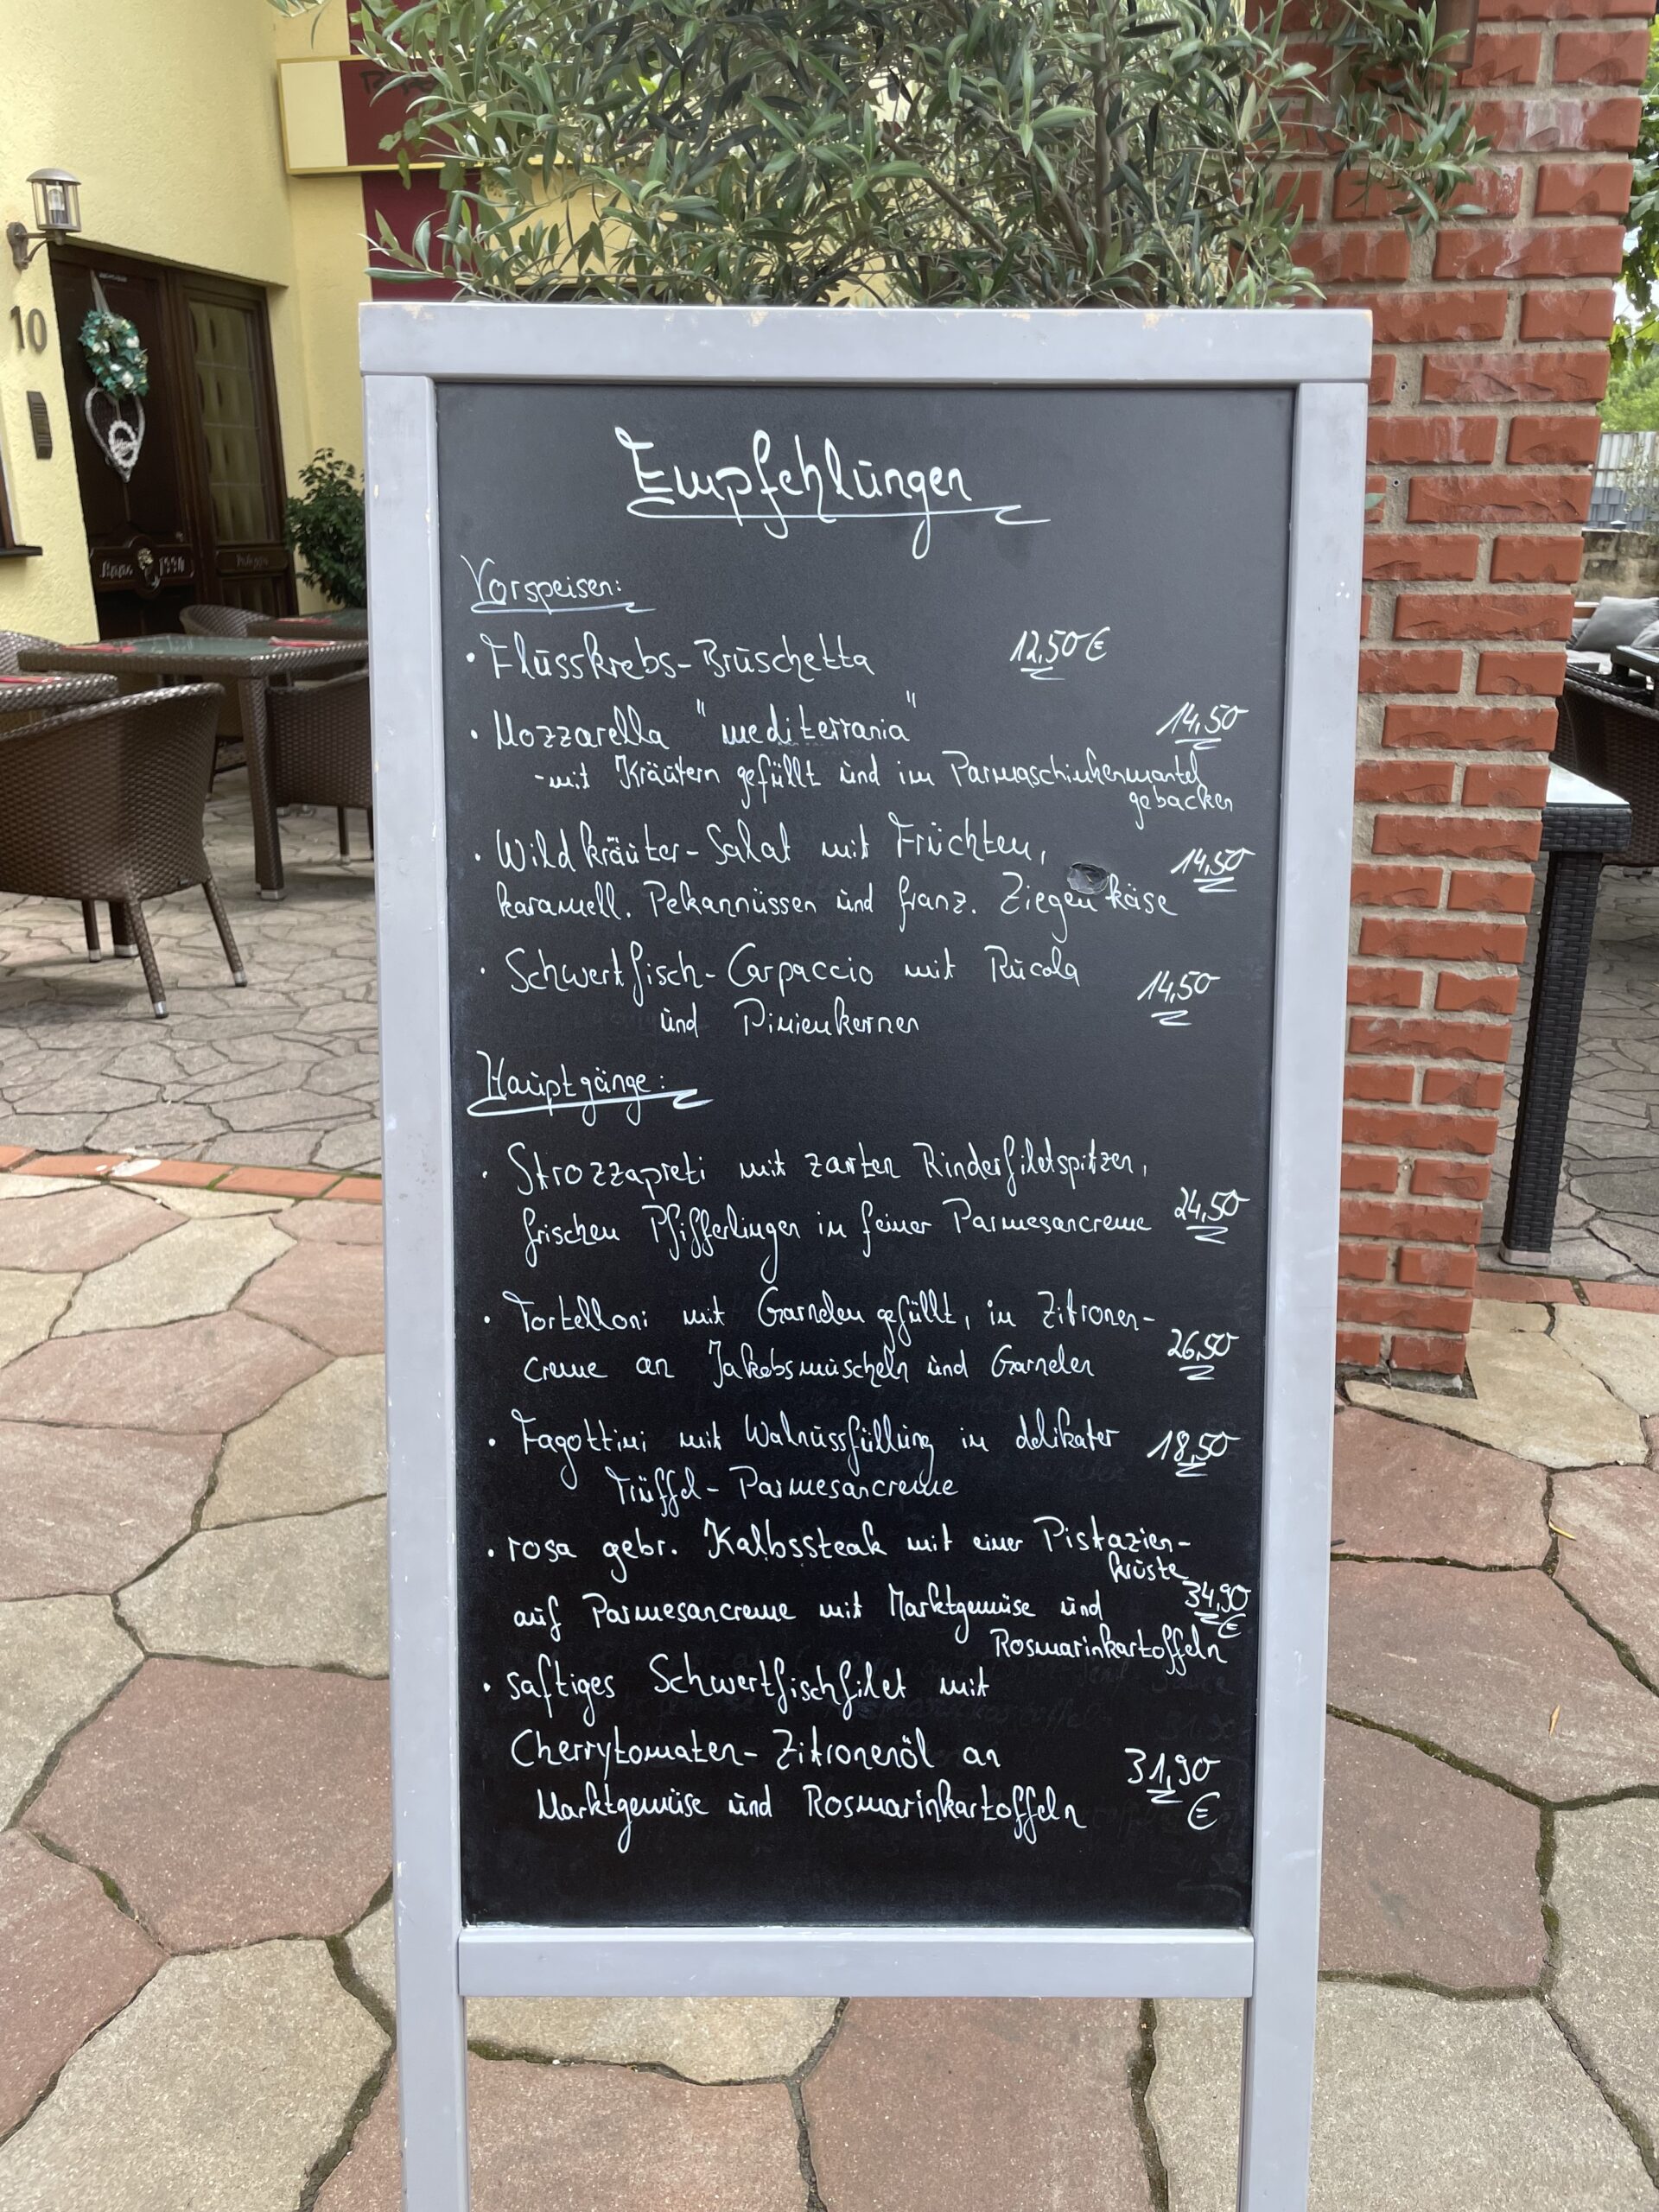 10
Empfehlungen
Vorspeisen:
• Flusskrebs-Bruschetta 12,50 €
• Mozzarella "mediterrania" 14,50
-mit Kräutern gefüllt und im Parmaschinkenmantel
gebacken
• Wildkräuter-Salat mit Früchten,
karamell. Pekannüssen und franz. Ziegenkäse 14,50
• Schwertfisch-Carpaccio mit Rucola
und Pinienkernen 14,50
Hauptgänge:
• Strozzapreti mit zarten Rinderfiletspitzen,
frischen Pfifferlingen in feiner Parmesancreme 24,50
• Tortelloni mit Garnelen gefüllt, in Zitronen-
creme an Jakobsmuscheln und Garnelen 26,50
• Fagottini mit Walnussfüllung in delikater 18,50
Trüffel-Parmesancreme
• rosa gebr. Kalbssteak mit einer Pistazien-
kruste
auf Parmesancreme mit Marktgemüse und 34,90
€
Rosmarinkartoffeln
• saftiges Schwertfischfilet mit
Cherrytomaten-Zitronenöl an 31,90
Marktgemüse und Rosmarinkartoffeln €